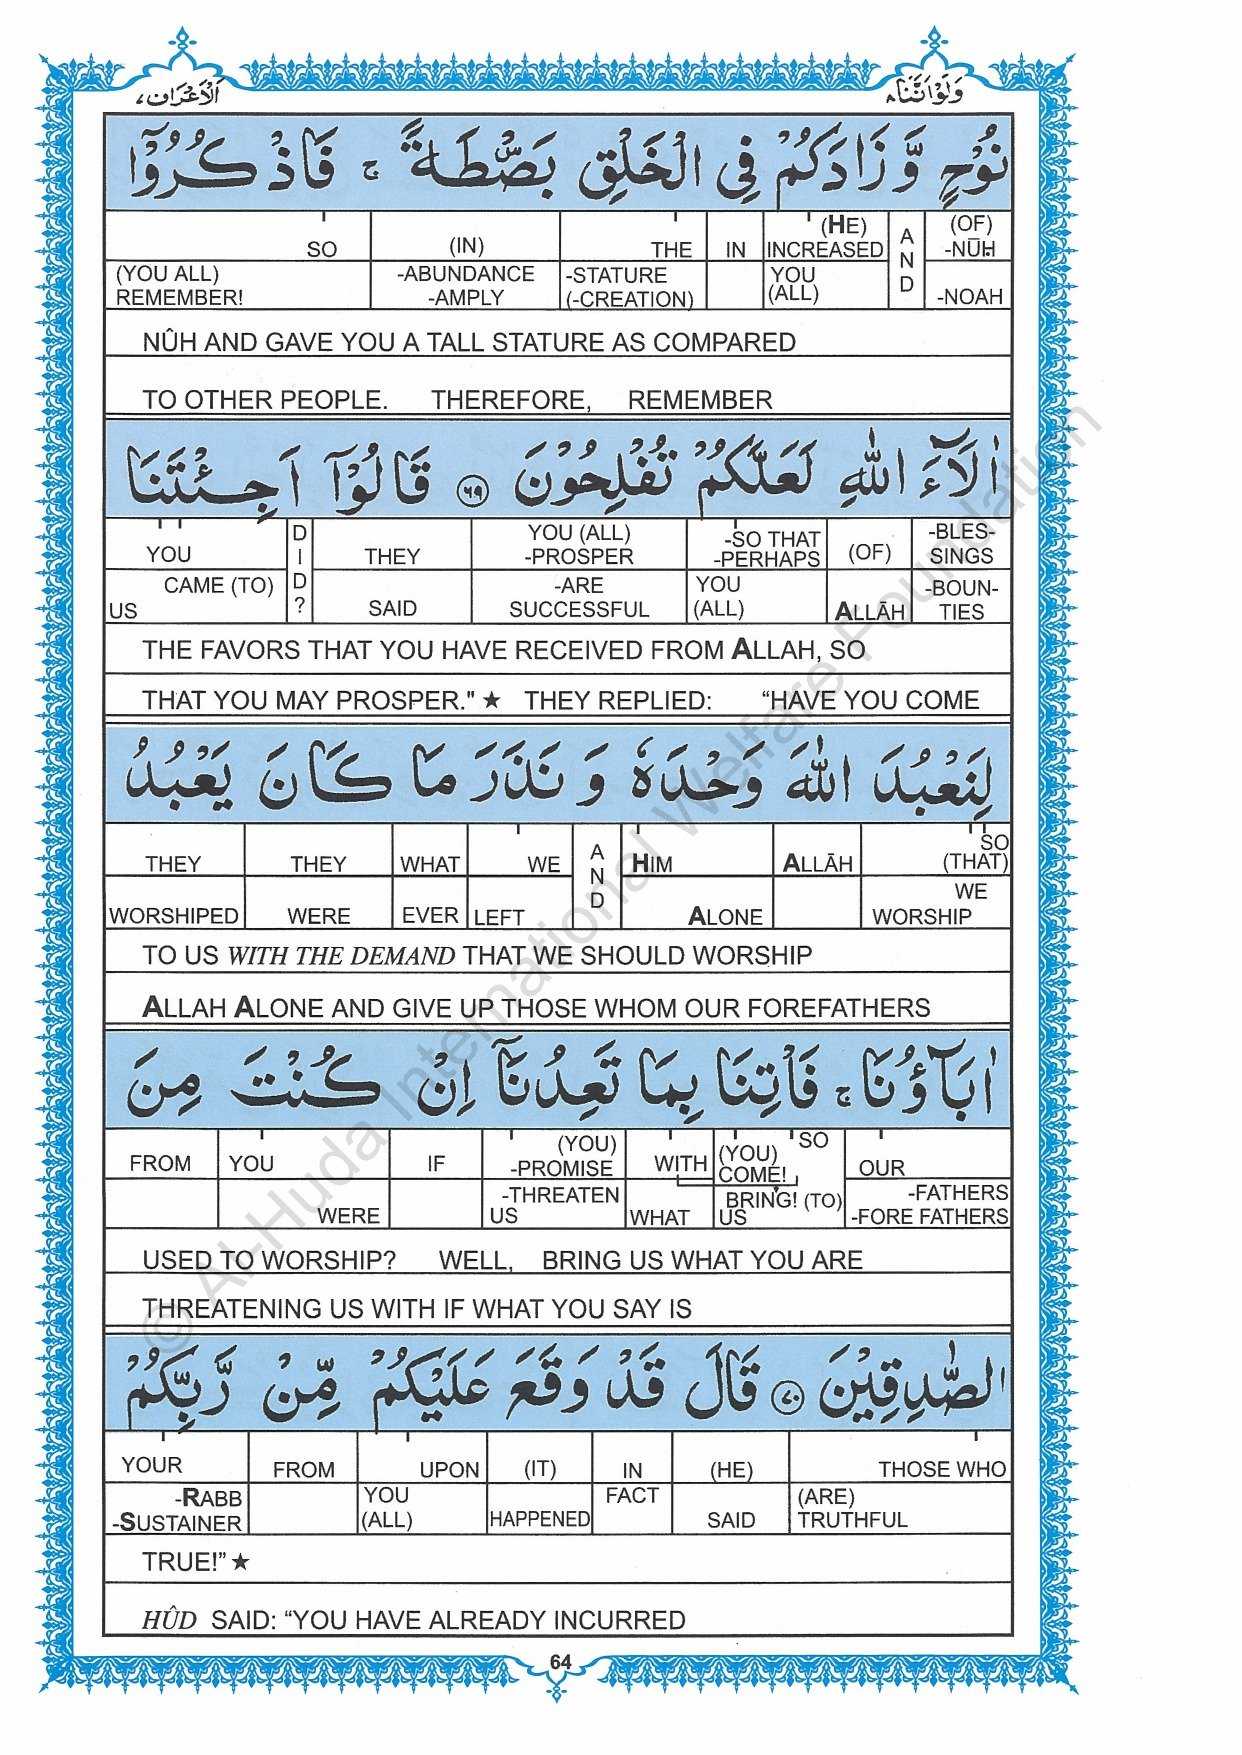 اَلْاَعْرَاف ٧ وَلَوْ اَنَّنَا ٨
نُوْحٍ وَّ زَادَكُمْ فِي الْخَلْقِ بَصْۜطَةً ۚ فَاذْكُرُوْۤا
(OF) -NŪH -NOAH | AND | (HE) INCREASED YOU (ALL) | IN | THE -STATURE (-CREATION) | (IN) -ABUNDANCE -AMPLY | SO (YOU ALL) REMEMBER!
NÛH AND GAVE YOU A TALL STATURE AS COMPARED
TO OTHER PEOPLE. THEREFORE, REMEMBER
اٰلَآءَ اللّٰهِ لَعَلَّكُمْ تُفْلِحُوْنَ ﴿۶۹﴾ قَالُوْۤا اَجِئْتَنَا
-BLES-SINGS -BOUN-TIES | (OF) ALLĀH | -SO THAT -PERHAPS YOU (ALL) | YOU (ALL) -PROSPER -ARE SUCCESSFUL | THEY SAID | DID? | YOU CAME (TO) US
THE FAVORS THAT YOU HAVE RECEIVED FROM ALLAH, SO
THAT YOU MAY PROSPER." ★ THEY REPLIED: “HAVE YOU COME
لِنَعْبُدَ اللّٰهَ وَحْدَهٗ وَ نَذَرَ مَا كَانَ يَعْبُدُ
SO (THAT) WE WORSHIP | ALLĀH | HIM ALONE | AND | WE LEFT | WHAT EVER | THEY WERE | THEY WORSHIPED
TO US WITH THE DEMAND THAT WE SHOULD WORSHIP
ALLAH ALONE AND GIVE UP THOSE WHOM OUR FOREFATHERS
اٰبَآؤُنَا ۚ فَاْتِنَا بِمَا تَعِدُنَاۤ اِنْ كُنْتَ مِنَ
OUR -FATHERS -FORE FATHERS | SO (YOU) COME! BRING! (TO) US | WITH WHAT | (YOU) -PROMISE -THREATEN US | IF | YOU WERE | FROM
USED TO WORSHIP? WELL, BRING US WHAT YOU ARE
THREATENING US WITH IF WHAT YOU SAY IS
الصّٰدِقِيْنَ ﴿۷۰﴾ قَالَ قَدْ وَقَعَ عَلَيْكُمْ مِّنْ رَّبِّكُمْ
THOSE WHO (ARE) TRUTHFUL | (HE) SAID | IN FACT | (IT) HAPPENED | UPON YOU (ALL) | FROM | YOUR -RABB -SUSTAINER
TRUE!” ★
HÛD SAID: “YOU HAVE ALREADY INCURRED
64
© Al-Huda International Welfare Foundation